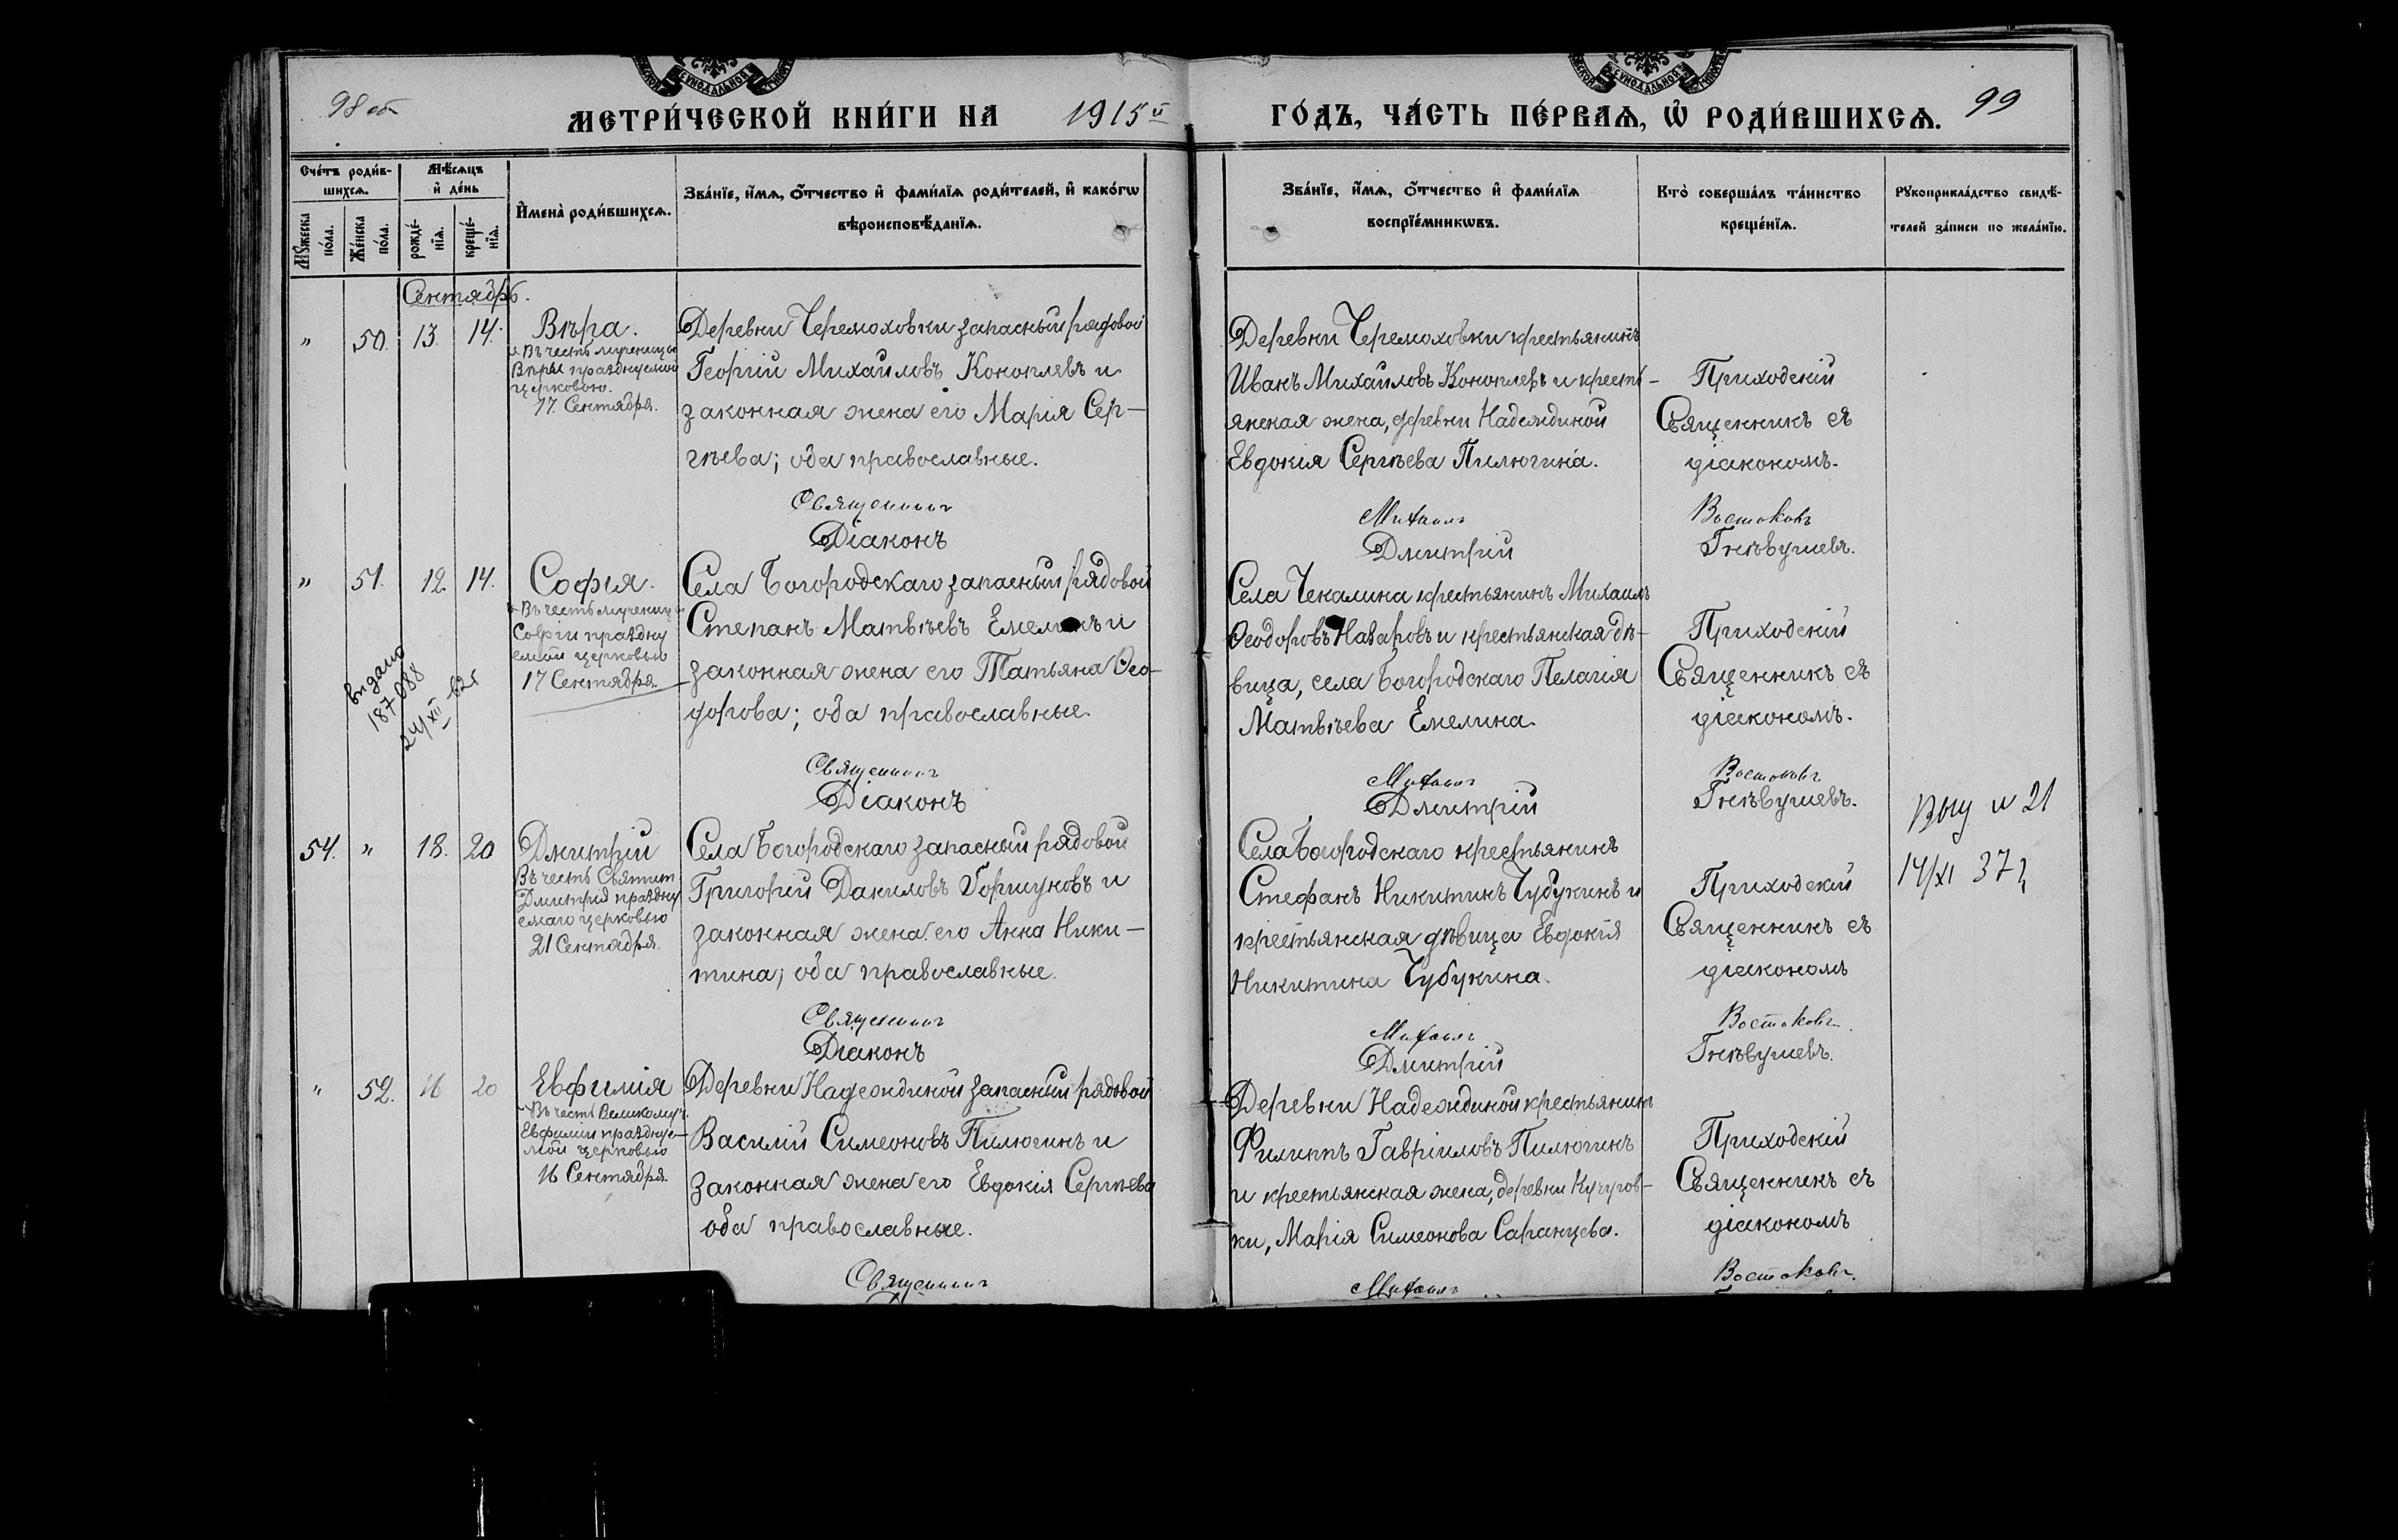 98 об
МЕТРИ́ЧЕСКОЙ КНИ́ГИ НА 1915й ГО́ДЪ, ЧА́СТЬ ПЕ́РВАѦ, Ѡ҆ РОДИ́ВШИХСѦ.
99
Сче́тъ роди́в-
шихсѧ.
Мꙋ́жеска по́ла.
Же́нска по́ла.
Мѣ́сѧцъ
и҆ де́нь
рожде́-
нїѧ.
креще́-
нїѧ.
И҆мена̀ роди́вшихсѧ.
Зва́нїе, и҆́мѧ, о҆́тчество и҆ фами́лїѧ роди́телей, и҆ како́гѡ
вѣроисповѣ́данїѧ.
Зва́нїе, и҆́мѧ, о҆́тчество и҆ фами́лїѧ
воспрїе́мникѡвъ.
Кто̀ соверша́лъ та́инство
креще́нїѧ.
Рꙋкоприкла́дство свидѣ́-
телей за́писи по жела́нїю.
Сентябрь.
" 50. 13. 14.
Вѣра.
Въ честь мученицы
Вѣры празднуемой
церковою.
17. Сентября.
Деревни Черемоховки запасный рядовой
Георгій Михаиловъ Коноплевъ и
законная жена его Марія Сер-
гѣева; оба православные.
Деревни Черемоховки крестьянинъ
Иванъ Михаиловъ Коноплевъ и кресть-
янская жена, деревни Надеждиной
Евдокія Сергѣева Пилюгина.
Приходскій
Священникъ съ
діакономъ.
Священникъ Михаилъ Востоковъ
Діаконъ Дмитрій Гнѣвушевъ.
" 51. 12. 14.
София.
Въ честь мучениц
Софіи праздну
емой церковью
17 Сентября.
выдано
187088
24/XII-62г
Села Богородскаго запасный рядовой
Степанъ Матвѣевъ Емелинъ и
законная жена его Татьяна Ѳео-
дорова; оба православные.
Села Чекалина крестьянинъ Михаилъ
Ѳеодоровъ Назаровъ и крестьянская дѣ-
вица, села Богородскаго Пелагія
Матвѣева Емелина.
Приходскій
Священникъ съ
діакономъ.
Священникъ Михаилъ Востоковъ
Діаконъ Дмитрій Гнѣвушевъ.
54. " 18. 20
Дмитрій
Въ честь Святит
Дмитрія праздну
емаго церковью
21 Сентября.
Села Богородскаго запасный рядовой
Григорій Даниловъ Горшуновъ и
законная жена его Анна Ники-
тина; оба православные.
Села Богородскаго крестьянинъ
Стефанъ Никитинъ Чубукинъ и
крестьянская дѣвица Евдокія
Никитина Чубукина.
Приходскій
Священникъ съ
діакономъ
21
14/XI 37г
Священникъ Михаилъ Востоковъ.
Діаконъ Дмитрій Гнѣвушевъ.
" 52. 16 20
Евфимія
Въ честь Великомуч.
Евфиміи праздnуе-
мой церковью
16 Сентября.
Деревни Надеждиной запасный рядовой
Василій Симеоновъ Пилюгинъ и
законная жена его Евдокія Сергѣева
оба православные.
Деревни Надеждиной крестьянинъ
Филиппъ Гавріиловъ Пилюгинъ
и крестьянская жена, деревни Кучугов-
ки, Марія Симеонова Саранцева.
Приходскій
Священникъ съ
діакономъ
Священникъ Михаилъ Востоковъ.